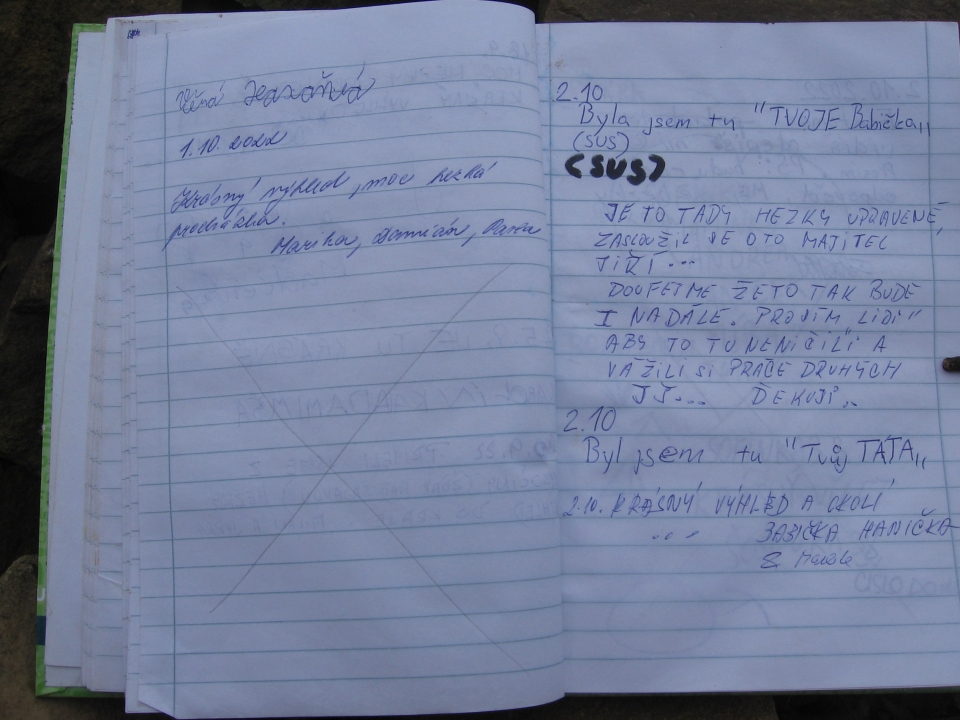 Věra
1.10.2022
Krásný výhled, moc hezká
procházka.
Marika, Damián, Pavla
2.10
Byla jsem tu "TVOJE Babička"
(SUS)
(SUS)
JE TO TADY HEZKY UPRAVENÉ,
ZASLOUŽIL SE OTO MAJITEL
JIŘÍ...
DOUFEJME ŽE TO TAK BUDE
I NADÁLE. PROSÍM LIDI"
ABY TO TU NENIČILI A
VÁŽILI SI PRÁCE DRUHÝCH
JJ.... DEKUJI..
2.10
Byl jsem tu "Tvůj TÁTA"
2.10. KRÁSNÝ VÝHLED A OKOLÍ
HANIČKA
&